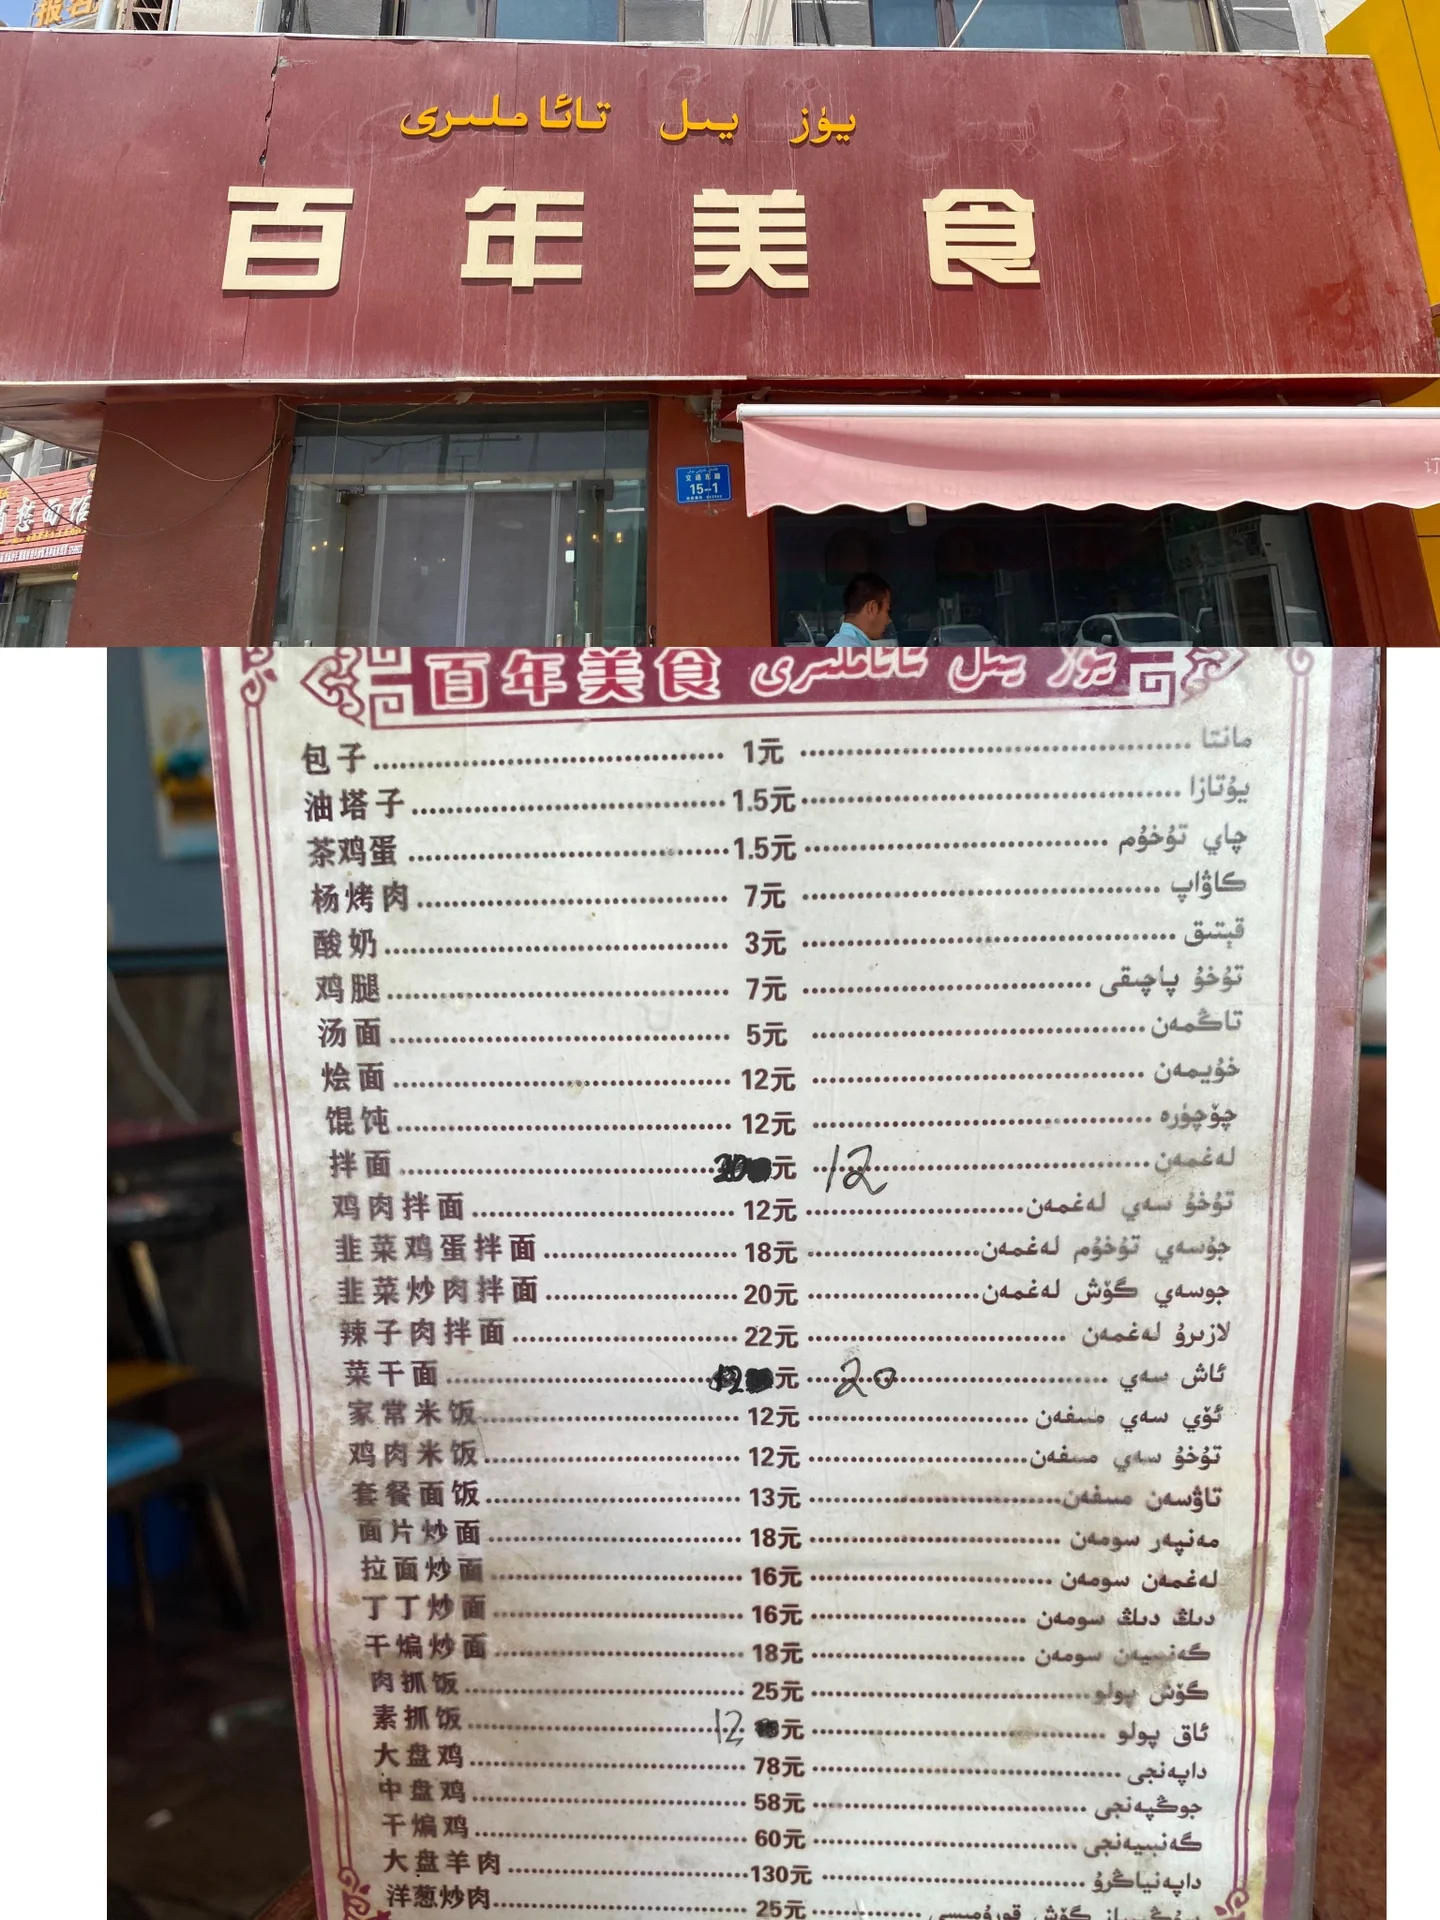 يۈز يىل تائاملىرى
百年美食
15-1
百年美食 يۈز يىل تائاملىرى
包子 1元 مانتا
油塔子 1.5元 يۇتازا
茶鸡蛋 1.5元 چاي تۇخۇم
杨烤肉 7元 كاۋاپ
酸奶 3元 قېتىق
鸡腿 7元 تۇخۇ پاچىقى
汤面 5元 تاڭمەن
烩面 12元 خۇيمەن
馄饨 12元 چۆچۈرە
拌面 元 12 لەغمەن
鸡肉拌面 12元 تۇخۇ سەي لەغمەن
韭菜鸡蛋拌面 18元 جۇسەي تۇخۇم لەغمەن
韭菜炒肉拌面 20元 جوسەي گۆش لەغمەن
辣子肉拌面 22元 لازىرۇ لەغمەن
菜干面 元 20 ئاش سەي
家常米饭 12元 ئۆي سەي مىسفەن
鸡肉米饭 12元 تۇخۇ سەي مىسفەن
套餐面饭 13元 تاۋسەن مىسفەن
面片炒面 18元 مەنپەر سومەن
拉面炒面 16元 لەغمەن سومەن
丁丁炒面 16元 دىڭ دىڭ سومەن
干煸炒面 18元 گەنبىيەن سومەن
肉抓饭 25元 گۆش پولو
素抓饭 12 元 ئاق پولو
大盘鸡 78元 داپەنجى
中盘鸡 58元 جوڭپەنجى
干煸鸡 60元 گەنبىيەنجى
大盘羊肉 130元 داپەنياڭرۇ
洋葱炒肉 25元